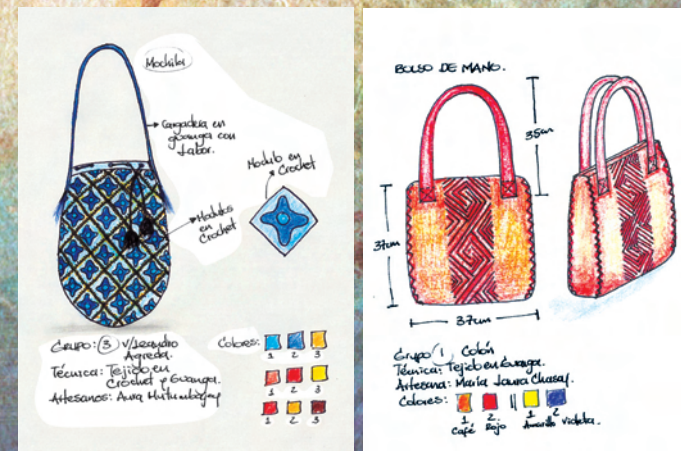 Mochila
Cargadera en
guanga con
Labor.
Modulo en
Crochet
Modulos
en
Crochet
Grupo: 3 V/Leandro
Agreda.
Técnica: Tejido en
Crochet y Guanga.
Artesanos: Aura
Colores:
1 2 3
1 2 3
1 2 3
BOLSO DE MANO.
35cm
37cm
37cm
Grupo 1, Colón
Técnica: Tejido en Guanga.
Artesana: María Laura Chasoy.
Colores:
1 2. 1 2
Café Rojo Amarillo Violeta.